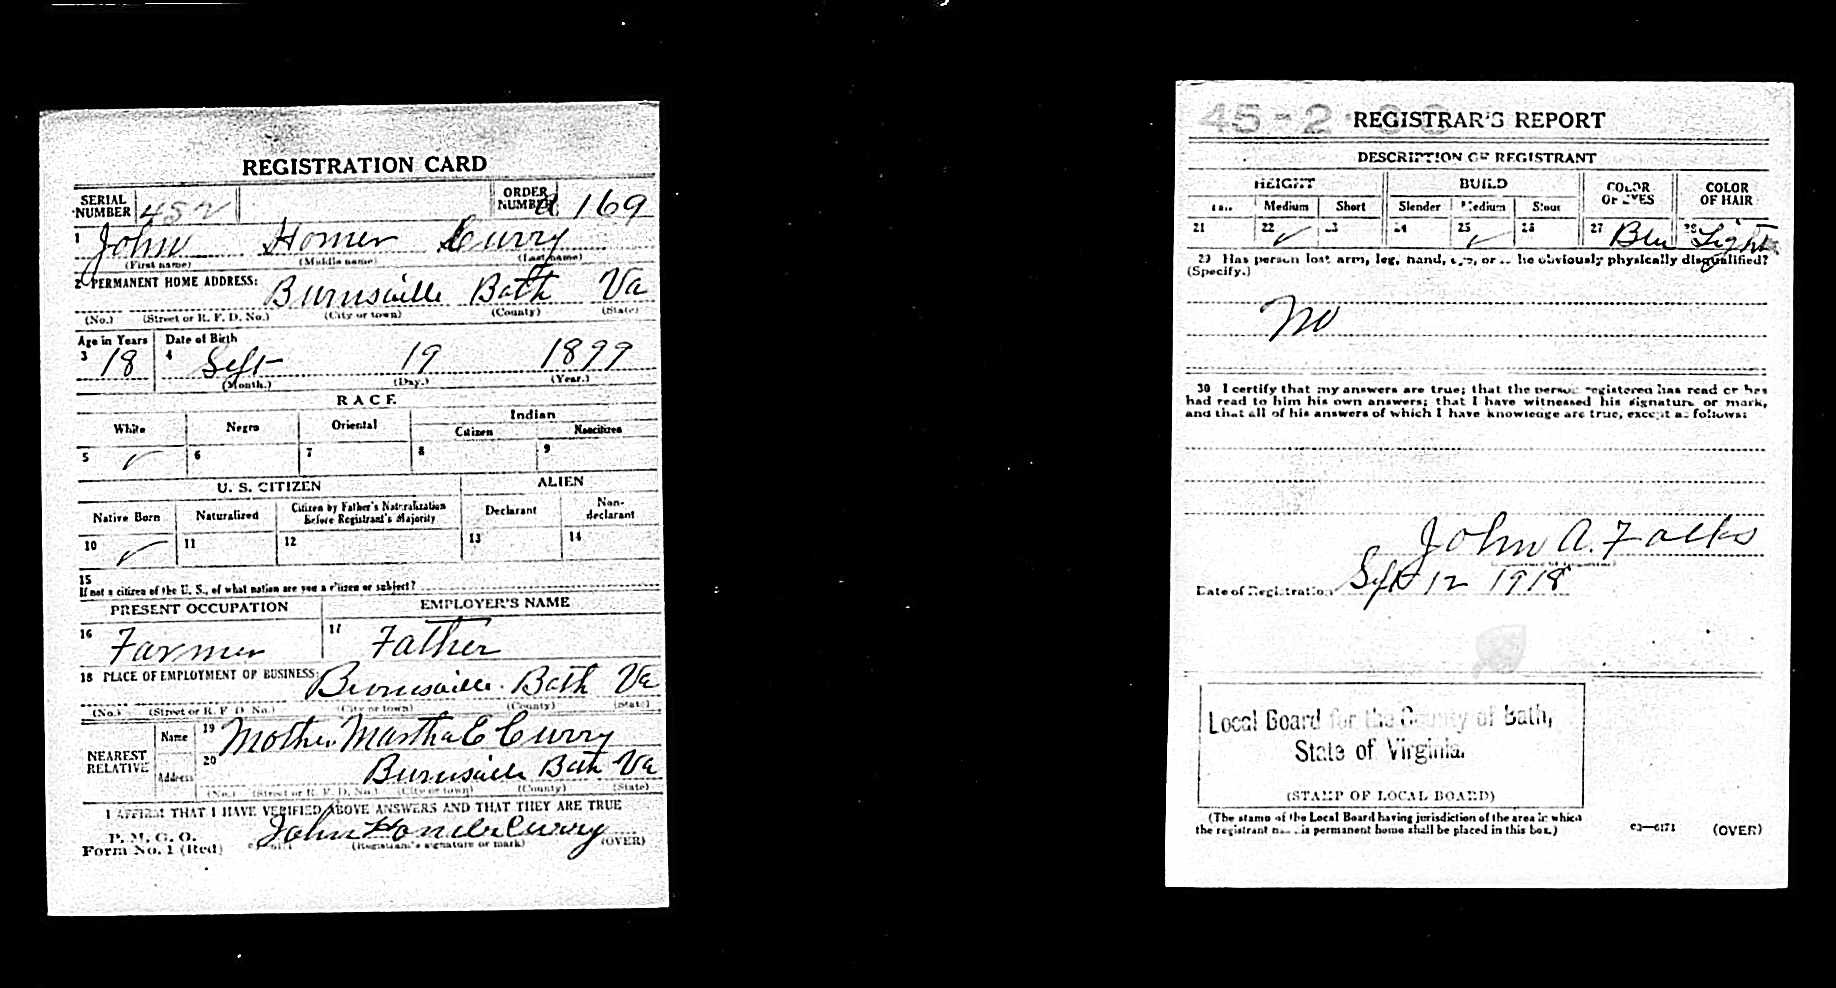 REGISTRATION CARD
SERIAL NUMBER 452 ORDER NUMBER A 169
1 John Homer Curry
(First name) (Middle name) (Last name)
2 PERMANENT HOME ADDRESS: Burnsville Bath Va
(No.) (Street or R. F. D. No.) (City or town) (County) (State)
Age in Years Date of Birth
3 18 4 Sept 19 1899
(Month.) (Day.) (Year.)
RACE
White Negro Oriental Indian
Citizen Noncitizen
5 ✓ 6 7 8 9
U. S. CITIZEN ALIEN
Native Born Naturalized Citizen by Father's Naturalization Before Registrant's Majority Declarant Non-declarant
10 ✓ 11 12 13 14
15
If not a citizen of the U. S., of what nation are you a citizen or subject?
PRESENT OCCUPATION EMPLOYER'S NAME
16 Farmer 17 Father
18 PLACE OF EMPLOYMENT OR BUSINESS: Burnsville Bath Va
(No.) (Street or R. F. D. No.) (City or town) (County) (State)
NEAREST RELATIVE Name 19 Mother Martha E Curry
Address 20 Burnsville Bath Va
(No.) (Street or R. F. D. No.) (City or town) (County) (State)
I AFFIRM THAT I HAVE VERIFIED ABOVE ANSWERS AND THAT THEY ARE TRUE
P. M. G. O.
Form No. 1 (Red) John Homer Curry
(Registrant's signature or mark) (OVER)
45-2-
REGISTRAR'S REPORT
DESCRIPTION OF REGISTRANT
HEIGHT BUILD COLOR OF EYES COLOR OF HAIR
Tall Medium Short Slender Medium Stout
21 22 ✓ 23 24 25 ✓ 26 27 Blu 28 Light
29 Has person lost arm, leg, hand, eye, or is he obviously physically disqualified?
(Specify.)
No
30 I certify that my answers are true; that the person registered has read or has
had read to him his own answers; that I have witnessed his signature or mark,
and that all of his answers of which I have knowledge are true, except as follows:
John A. Folks
Date of Registration Sept 12 1918
Local Board for the County of Bath,
State of Virginia.
(STAMP OF LOCAL BOARD)
(The stamp of the Local Board having jurisdiction of the area in which
the registrant has his permanent home shall be placed in this box.)
03—6171 (OVER)